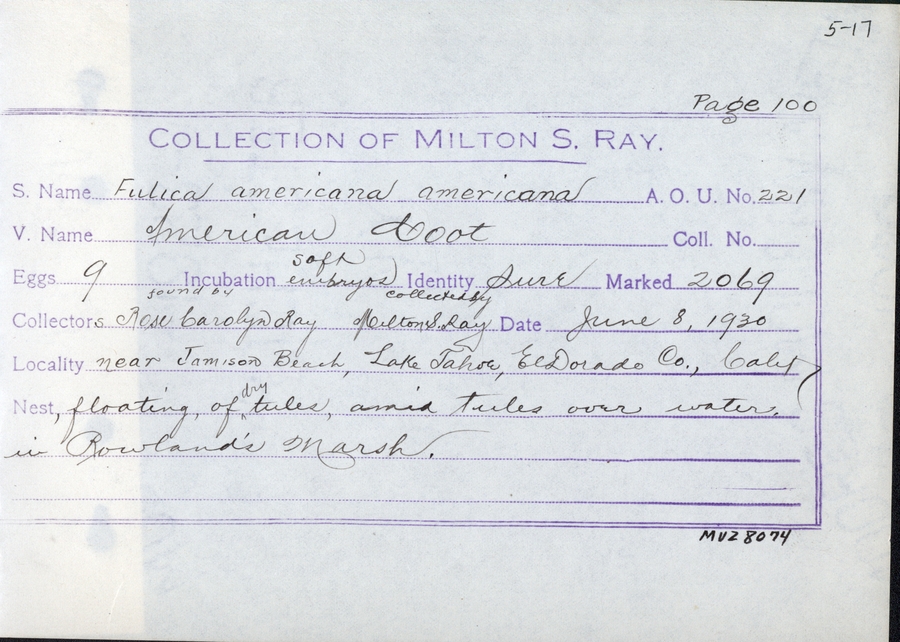 5-17
Page 100
COLLECTION OF MILTON S. RAY.
S. Name Fulica americana americana A. O. U. No. 221
V. Name American Coot Coll. No.
Eggs 9 Incubation soft embryos Identity Sure Marked 2069
Collectors found by Rose Carolyn Ray collected by Milton S. Ray Date June 8, 1930
Locality near Jamison Beach, Lake Tahoe, El Dorado Co., Calif
Nest, floating, of dry tules, amid tules over water,
in Rowland's Marsh.
MVZ 8074